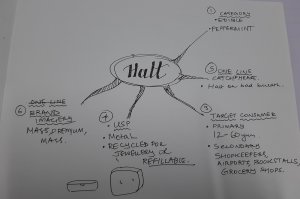 ① CATEGORY
• EDIBLE
• PEPPERMINT
Halt
② ONE LINE
CATCHPHRASE.
• Halt on bad breath.
③ TARGET CONSUMER
• PRIMARY
12-60 yrs
• SECONDARY
SHOPKEEPERS,
AIRPORTS, BOOKSTALLS,
GROCERY SHOPS.
④ USP
• Metal
• RECYCLED FOR
JEWELLERY OR
REFILLABLE.
⑥ ONE LINE
BRAND
IMAGERY
MASS, PREMIUM,
MASS.